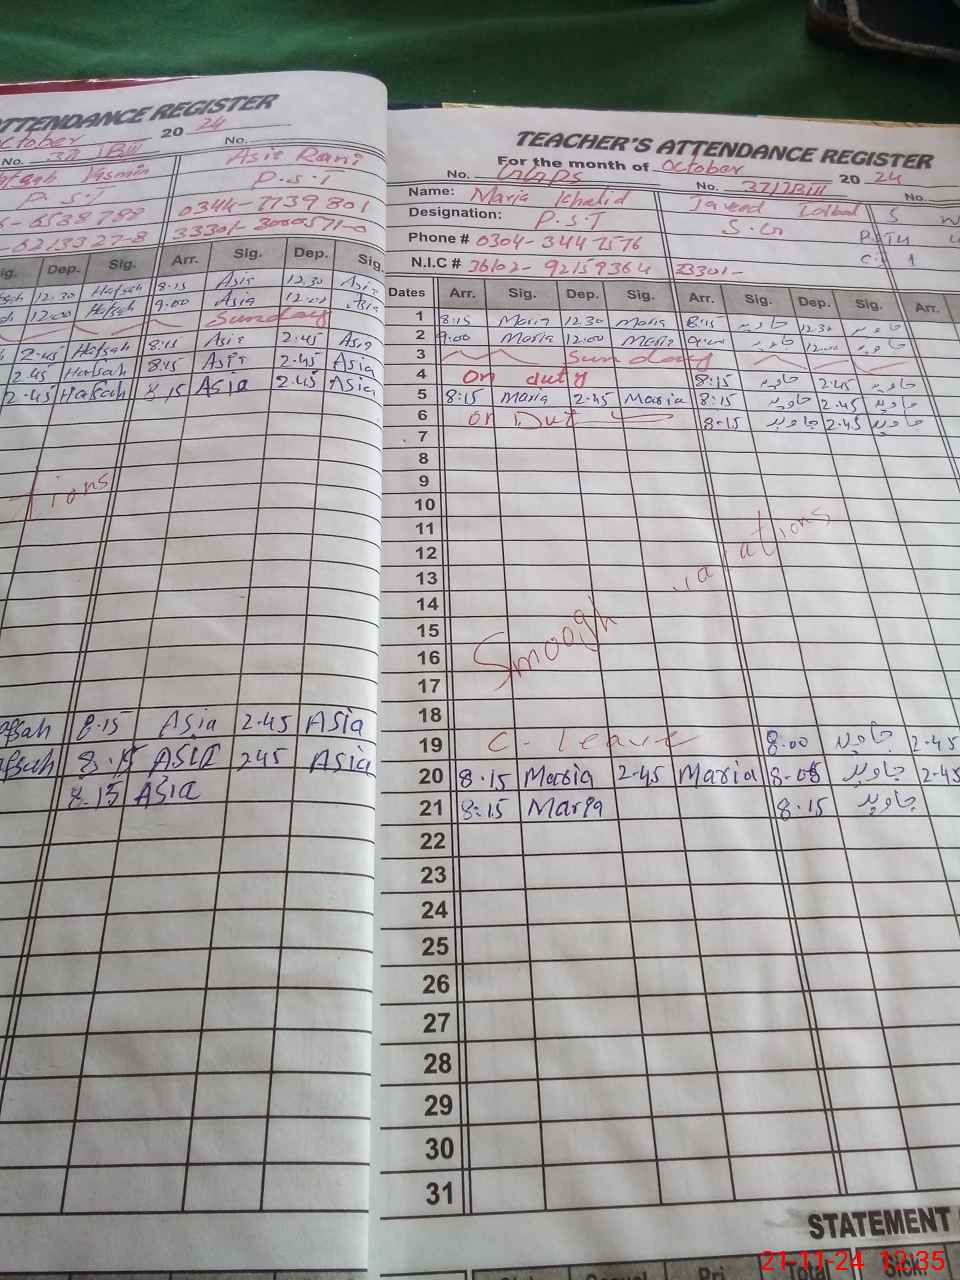 ATTENDANCE REGISTER
October 20 24
No. No.
Asia Rani
P.S.T P.S.T
0344-7739801
Dep. Sig. Arr. Sig. Dep. Sig.
12.30 Hafsah 8:15 Asia 12.30 Asia
12:00 Hafsah 9:00 Asia 12:00 Asia
Sunday
2.45 Hafsah 8:15 Asia 2.45 Asia
2.45 Hafsah 8:15 Asia 2.45 Asia
2.45 Hafsah 8.15 ASIA 2.45 Asia
8.15 Asia 2.45 ASia
8.15 ASIA 245 Asia
8.15 ASia
TEACHER'S ATTENDANCE REGISTER
For the month of October 20 24
No. GGPS No. No.
Name: Maria Khalid Javed Iqbal
Designation: P.S.T
Phone # 0304-3447576
N.I.C # 36102-92159364 33301-
Dates Arr. Sig. Dep. Sig. Arr. Sig. Dep. Sig. Arr.
1 8:15 Maria 12.30 Maria 8:15 جاوید 12.30 جاوید
2 9:00 Maria 12:00 Maria 9:00 جاوید 12:00 جاوید
3 Sunday
4 On duty 8:15 جاوید 2.45 جاوید
5 8:15 Maria 2.45 Maria 8:15 جاوید 2.45 جاوید
6 On Dut 8:15 جاوید 2.45 جاوید
7
8
9
10
11
12
13
14
15
16
17
Smoogh vacations
18
19 C-leave 8:00 جاوید 2.45
20 8.15 Maria 2.45 Maria جاوید 2.45
21 8:15 Maria 8.15 جاوید
22
23
24
25
26
27
28
29
30
31
STATEMENT
21-11-24 12:35